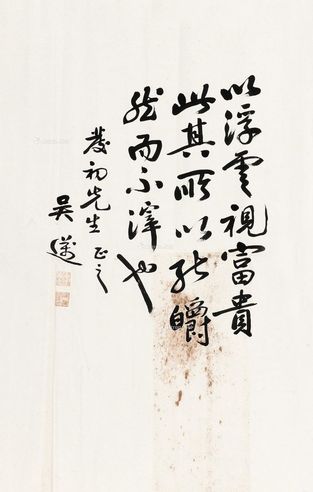 以浮雲視富貴
此其所以能皭
然而不滓也
發初先生正之
吳邁